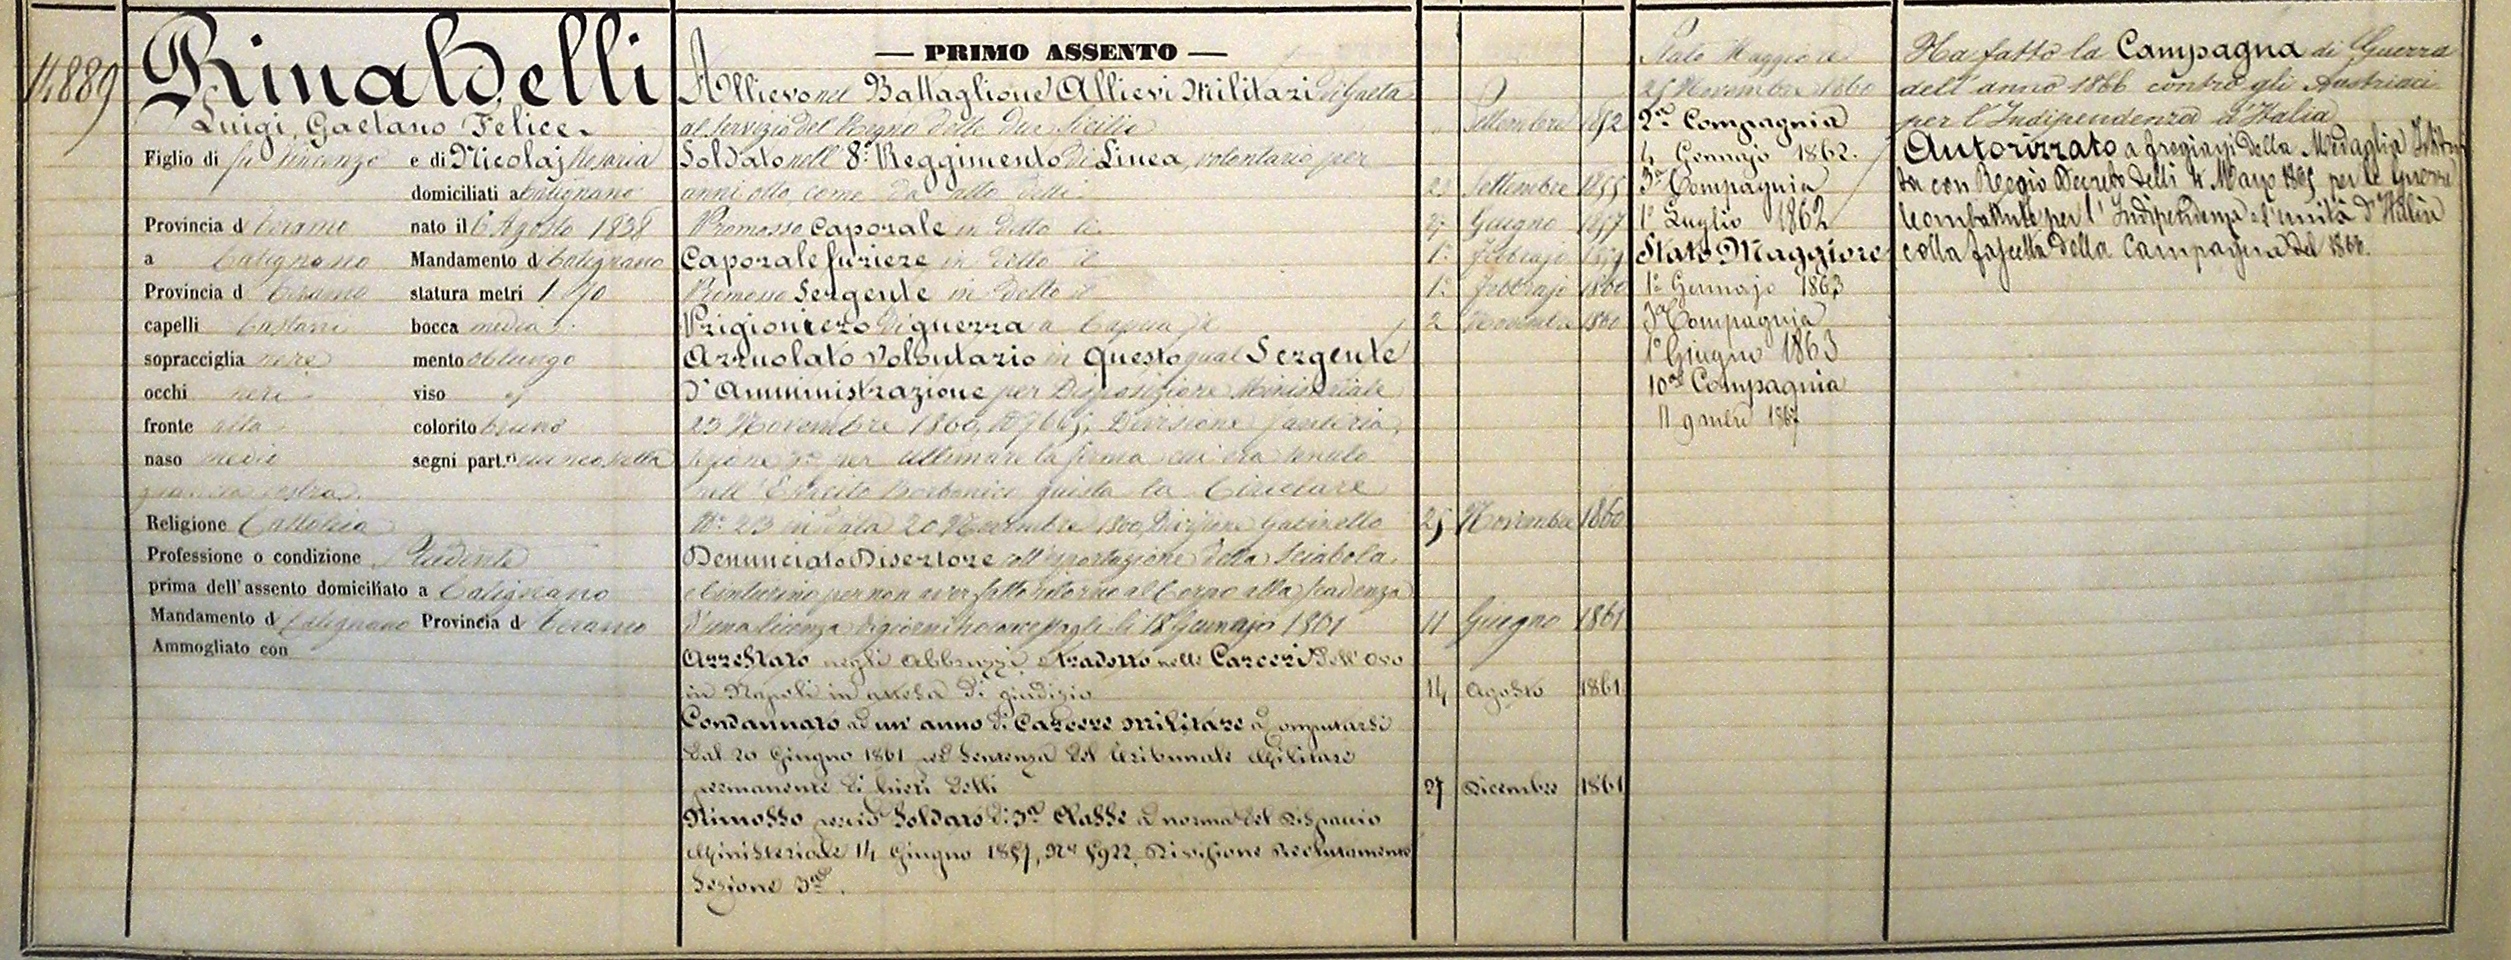 14889
Rinaldelli
Luigi, Gaetano Felice
Figlio di fu Vincenzo e di Nicolaj Rosaria
domiciliati a Catignano
Provincia d Teramo nato il 6 Agosto 1838
a Catignano Mandamento d Catignano
Provincia d Teramo statura metri 1 70
capelli Castani bocca media
sopracciglia nere mento oblungo
occhi neri viso
fronte alta colorito bruno
naso medio segni part.ri
Religione Cattolica
Professione o condizione Studente
prima dell'assento domiciliato a Catignano
Mandamento d Catignano Provincia d Teramo
Ammogliato con
— PRIMO ASSENTO —
Allievo nel Battaglione Allievi Militari di Gaeta
al servizio del Regno delle due Sicilie Settembre 1852
Soldato nell' 8° Reggimento di Linea, volontario per
anni otto, come da atto delli Settembre 1855
Promosso Caporale in detto li 27 Giugno 1857
Caporale furiere in detto il 1° Febbrajo 1859
Promosso Sergente in detto il 1° Febbrajo 1860
Prigioniero di guerra a Capua 2 Novembre 1860
Arruolato Volontario in questo qual Sergente
d'Amministrazione per Disposizione Ministeriale
23 Novembre 1860, Divisione fanteria,
per ultimare la ferma cui era tenuto
nell' Esercito Borbonico giusta la Circolare
N° 23 in data 20 Novembre 1860, Divisione Gabinetto 25 Novembre 1860
Denunciato Disertore coll'esportazione della Sciabola
e Cinturino per non aver fatto ritorno al Corpo alla scadenza
d'una licenza di giorni concessagli li 18 Gennajo 1861 11 Giugno 1861
Arrestato negli Abbruzzi e tradotto nelle Carceri dell'Ovo
in Napoli in attesa di giudizio 14 Agosto 1861
Condannato ad un' anno di Carcere Militare a computarsi
dal 20 Giugno 1861 per Sentenza del Tribunale Militare
permanente di Chieti delli 27 Dicembre 1861
Rimosso perciò Soldato di 3a Classe a norma del Dispaccio
Ministeriale 14 Giugno 1857, N° 5922, Divisione Reclutamento
Sezione 3a.
Stato Maggiore
25 Novembre 1860
2a Compagnia
4 Gennajo 1862.
3a Compagnia
1° Luglio 1862
Stato Maggiore
1° Gennajo 1863
3a Compagnia
1° Giugno 1863
10a Compagnia
11 9mbre 1867
Ha fatto la Campagna di Guerra
dell' anno 1866 contro gli Austriaci
per l'Indipendenza d'Italia
Autorizzato a fregiarsi della Medaglia Istitui
ta con Regio Decreto delli 4 Marzo 1865 per le Guerre
Combattute per l'Indipendenza e l'unità d'Italia
colla fascetta della Campagna del 1866.